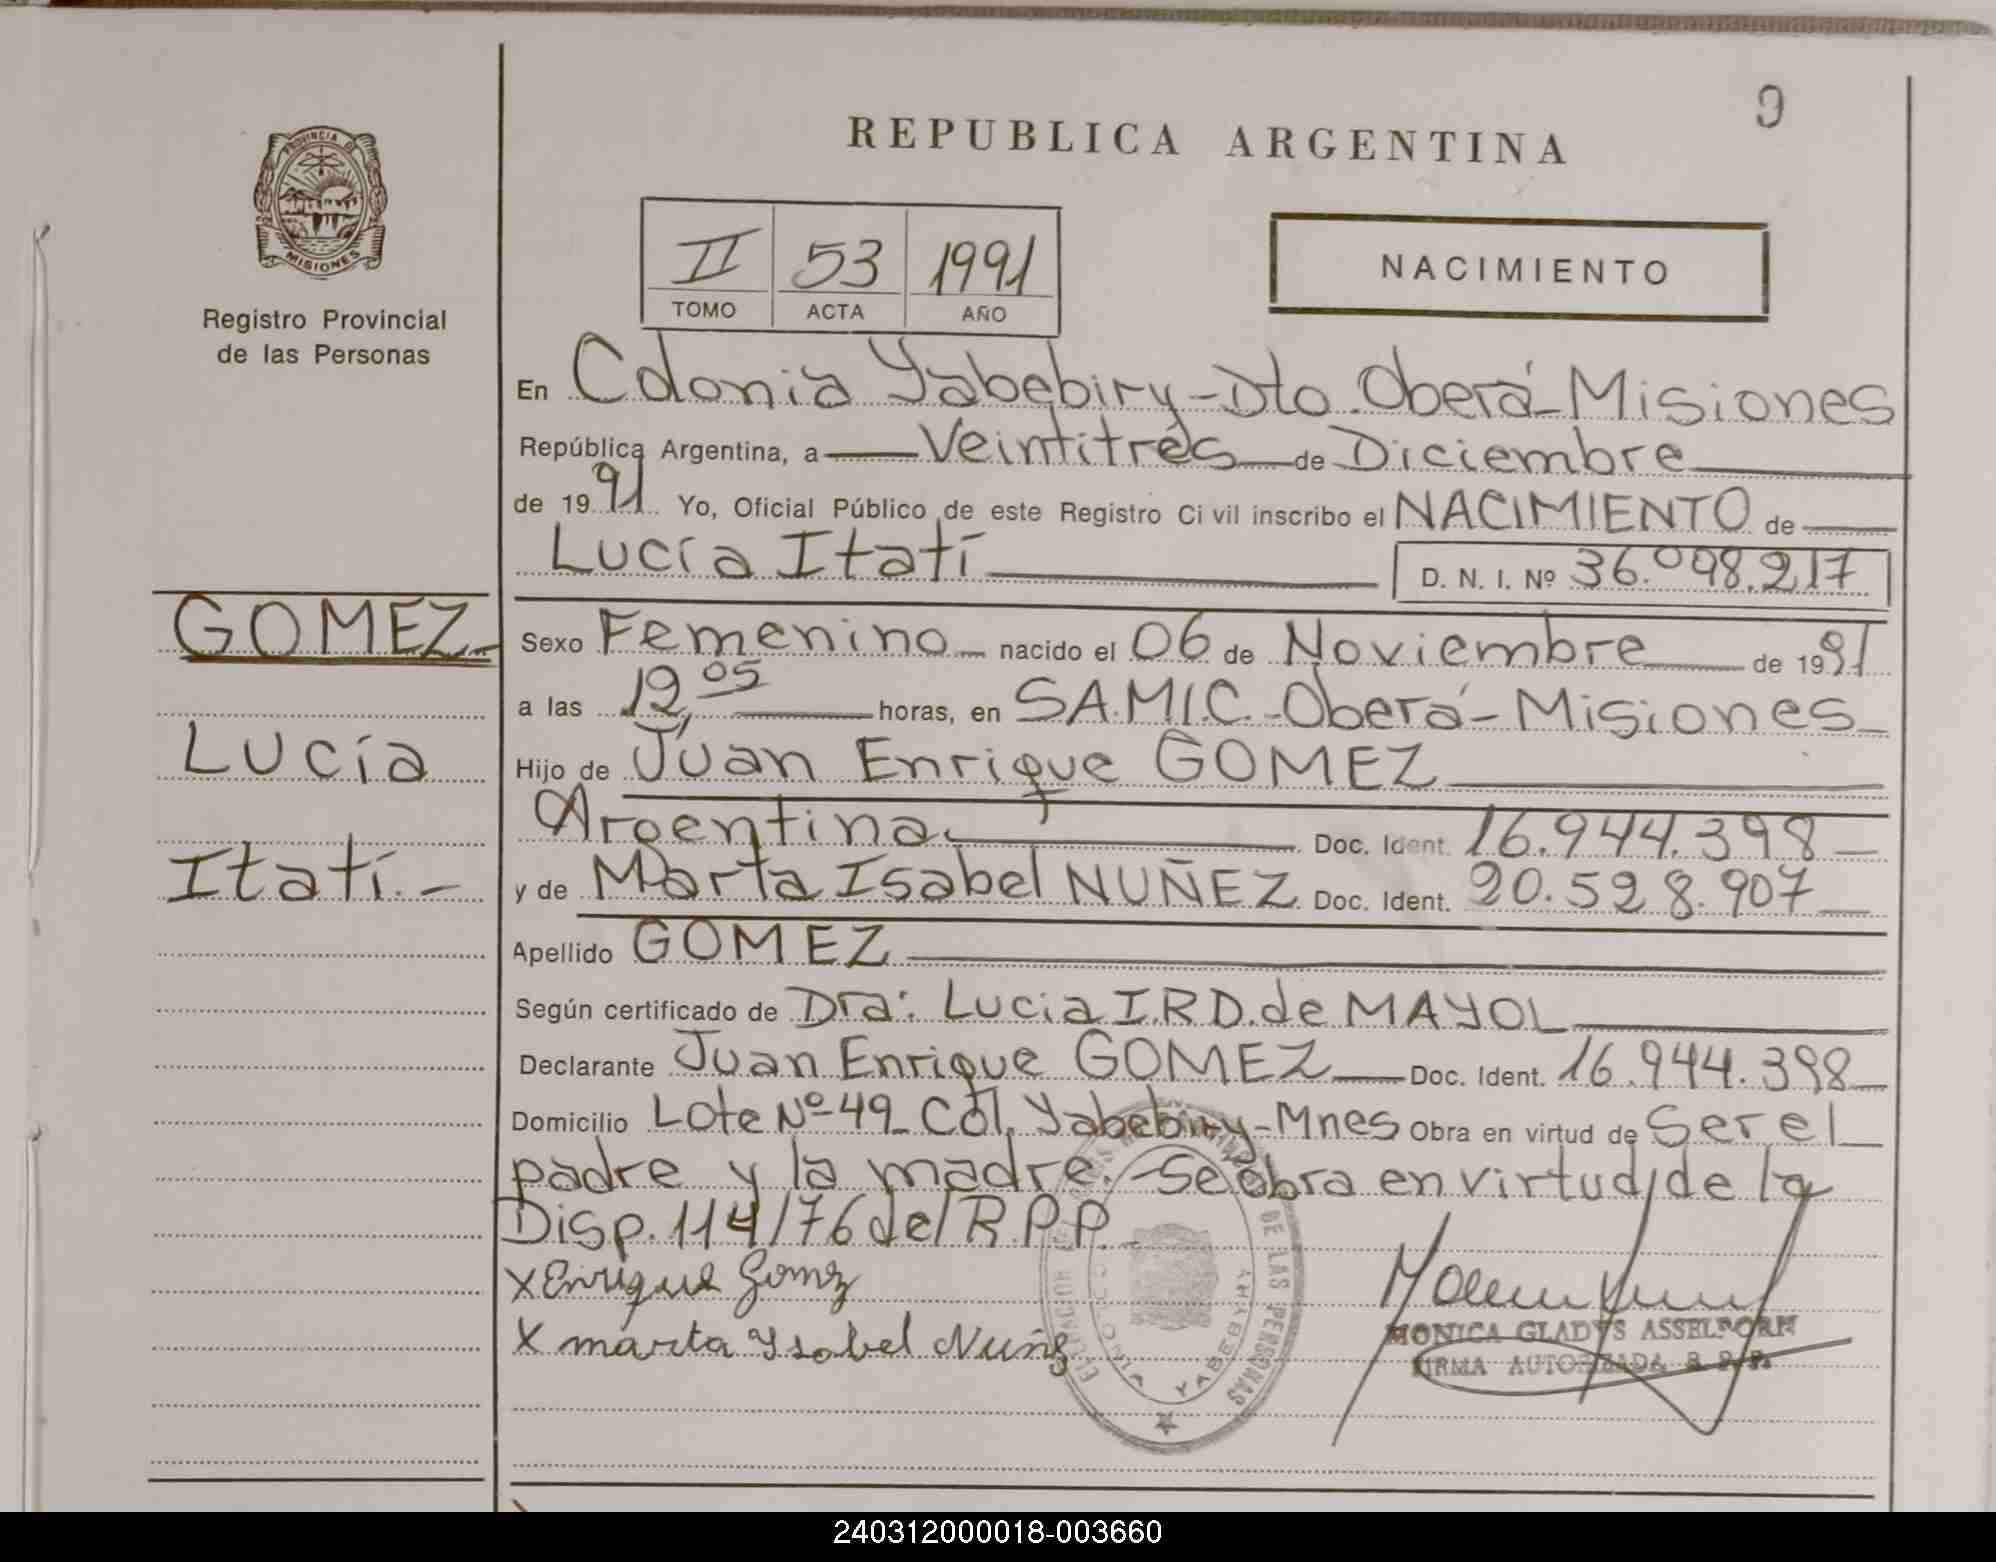 9
REPUBLICA ARGENTINA
PROVINCIA DE
MISIONES
Registro Provincial
de las Personas
II 53 1991
TOMO ACTA AÑO
NACIMIENTO
En Colonia Yabebiry-Dto. Oberá-Misiones
República Argentina, a — Veintitrés — de Diciembre —
de 1991 Yo, Oficial Público de este Registro Civil inscribo el NACIMIENTO de —
Lucía Itatí —
D. N. I. Nº 36.098.217
GOMEZ-
Lucía
Itatí.-
Sexo Femenino — nacido el 06 de Noviembre — de 1991
a las 12,05 — horas, en S.A.M.I.C.-Oberá-Misiones-
Hijo de Juan Enrique GOMEZ —
Argentina. — Doc. Ident. 16.944.398 —
y de Marta Isabel NUÑEZ Doc. Ident. 20.528.907 —
Apellido GOMEZ —
Según certificado de Dra: Lucia I.R.D. de MAYOL —
Declarante Juan Enrique GOMEZ — Doc. Ident. 16.944.398 —
Domicilio Lote Nº 49- Col. Yabebiry-Mnes Obra en virtud de Ser el
padre y la madre.-Se obra en virtud de la
Disp. 114/76 del R.P.P.-
X Enrique Gomez
X marta Ysabel Nuñez
DE LAS PERSONAS
COLONIA YABEBIRY
MONICA GLADYS ASSELBORN
FIRMA AUTORIZADA R. P. P.
240312000018-003660